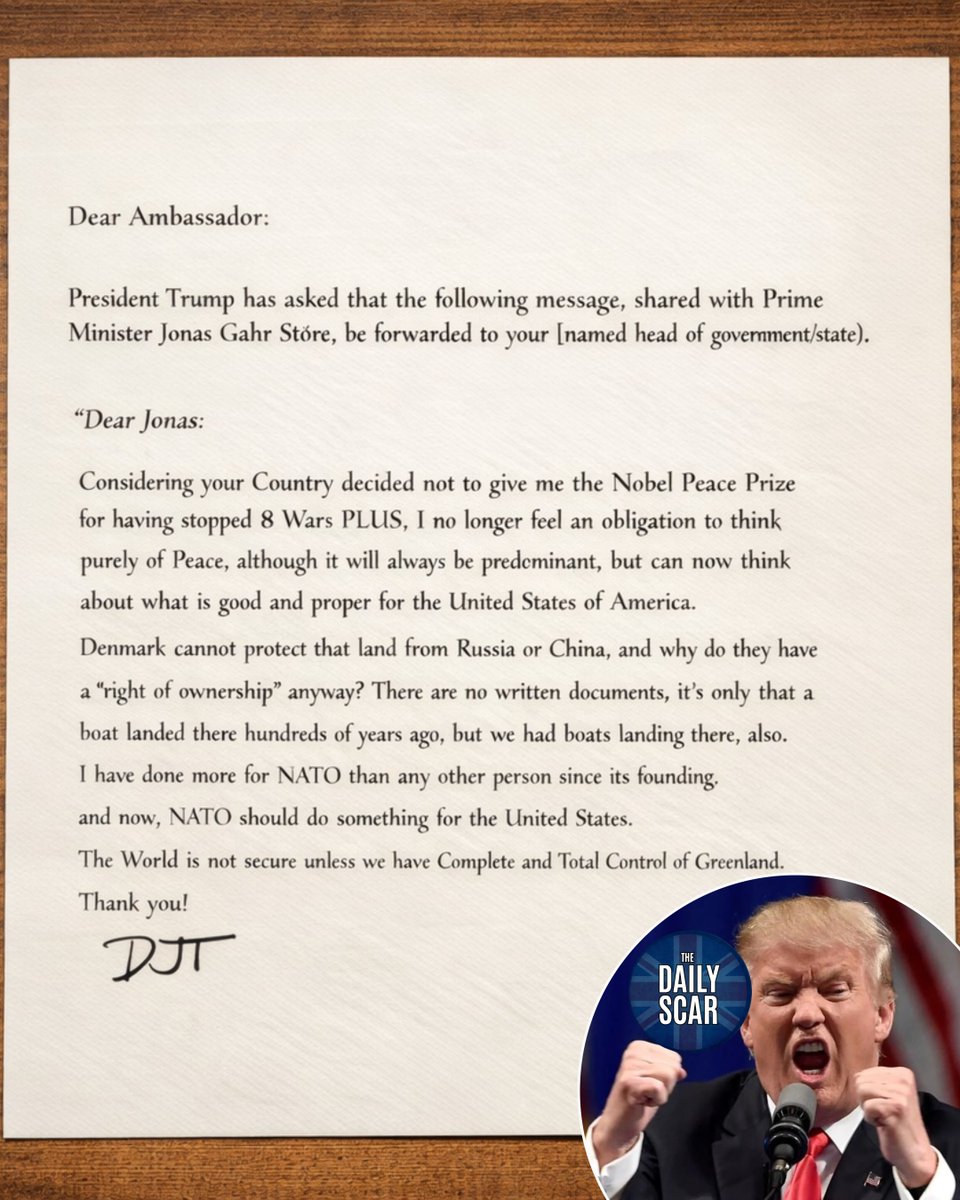 Dear Ambassador:
President Trump has asked that the following message, shared with Prime
Minister Jonas Gahr Störe, be forwarded to your [named head of government/state).
“Dear Jonas:
Considering your Country decided not to give me the Nobel Peace Prize
for having stopped 8 Wars PLUS, I no longer feel an obligation to think
purely of Peace, although it will always be predcminant, but can now think
about what is good and proper for the United States of America.
Denmark cannot protect that land from Russia or China, and why do they have
a “right of ownership” anyway? There are no written documents, it’s only that a
boat landed there hundreds of years ago, but we had boats landing there, also.
I have done more for NATO than any other person since its founding.
and now, NATO should do something for the United States.
The World is not secure unless we have Complete and Total Control of Greenland.
Thank you!
DJT
THE
DAILY
SCAR